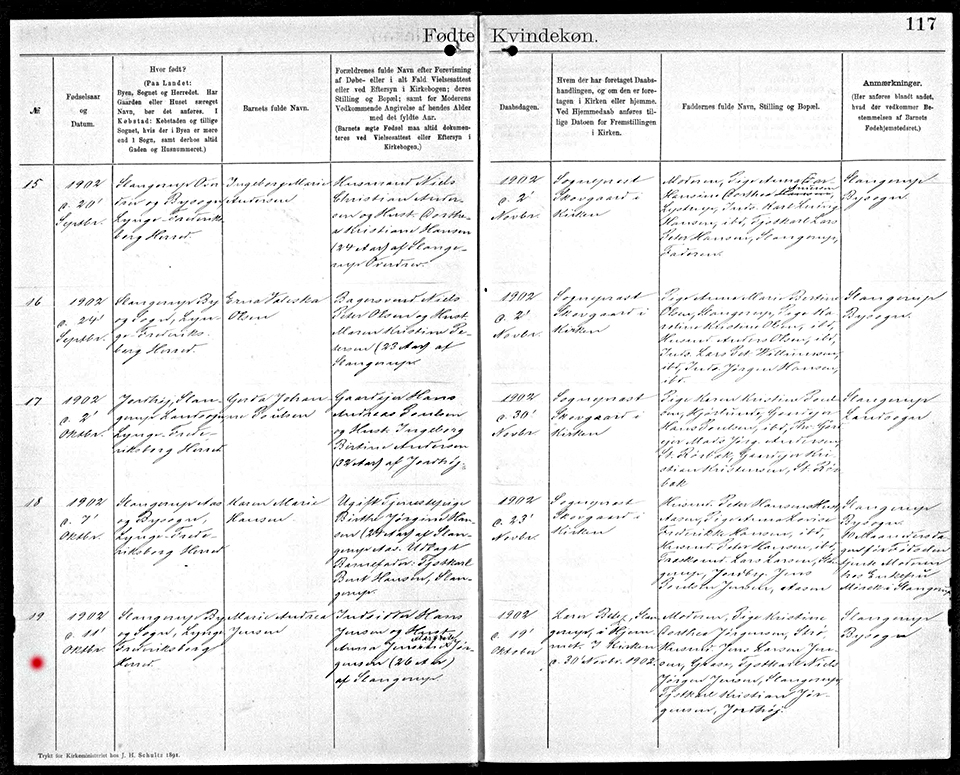 117
Fødte Kvindekøn.
№
Fødselsaar
og
Datum.
Hvor født?
(Paa Landet:
Byen, Sognet og Herredet. Har
Gaarden eller Huset særeget
Navn, bør det anføres. I
Købstad: Købstaden og tillige
Sognet, hvis der i Byen er mere
end 1 Sogn, samt derhos altid
Gaden og Husnummeret.)
Barnets fulde Navn.
Forældrenes fulde Navn efter Forevisning
af Døbe- eller i alt Fald Vielsesattest
eller ved Eftersyn i Kirkebogen; deres
Stilling og Bopæl; samt for Moderens
Vedkommende Angivelse af hendes Alder
med det fyldte Aar.
(Barnets ægte Fødsel maa altid dokumen-
teres ved Vielsesattest eller Eftersyn i
Kirkebogen.)
Daabsdagen.
Hvem der har foretaget Daabs-
handlingen, og om den er fore-
tagen i Kirken eller hjemme.
Ved Hjemmedaab anføres til-
lige Datoen for Fremstillingen
i Kirken.
Faddernes fulde Navn, Stilling og Bopæl.
Anmærkninger.
(Her anføres blandt andet,
hvad der vedkommer Be-
stemmelsen af Barnets
Fødehjemstedsret.)
15
1902
d. 20'
Septbr.
Slangerup Over
og Bysogn
Lynge-Frederiks
borg Herred.
Ingeborg Marie
Andersen
Husmand Niels
Christian Ander-
sen og Hust. Dorthea
Kristiane Hansen
(24 Aar) af Slange-
rup Overdrev.
1902
d. 2'
Novbr.
Sognepræst
Skovgaard i
Kirken
Moderen, Pige Anna
Hansine Dorthea
Lystrup, Inds. Karl Ludvig
Hansen, ibd, Tjstkarl Lars
Peter Hansen, Slangerup,
Faderen.
Slangerup
Bysogn.
16
1902
d. 24'
Septbr.
Slangerup By
og Sogn, Lyn-
ge-Frederiks
borg Herred.
Erna Valeska
Olsen
Bagersvend Niels
Peter Olsen og Hust.
Maren Kristine Pe-
dersen (23 Aar) af
Slangerup.
1902
d. 2'
Novbr.
Sognepræst
Skovgaard i
Kirken
Pige Anna Marie Bertine
Olsen, Slangerup, Pige Ka-
roline Kirstine Olsen, ibd,
Husmd. Anders Olsen, ibd,
Inds. Lars Pet. Willumsen,
ibd, Inds. Jørgen Hansen,
ibd.
Slangerup
Bysogn.
17
1902
d. 2'
Oktbr.
Jordhøj, Slan-
gerup Landsogn
Lynge-Frede-
riksborg Herred
Gerda Johan-
ne Poulsen
Gaardejer Hans
Andreas Poulsen
og Hust. Ingeborg
Birtine Andersen
(32 Aar) af Jordhøj.
1902
d. 30'
Novbr.
Sognepræst
Skovgaard i
Kirken
Pige Karen Kirstine Poul-
sen, Hjørlunde, Gaardejer
Hans Poulsen, ibd,
Mads Jørg. Andersen,
St. Rørbæk, Gaardejer Kri-
stian Kristensen, St. Rør-
bæk
Slangerup
Landsogn
18
1902
d. 7'
Oktbr.
Slangerup Aas
og Bysogn,
Lynge-Frede-
riksborg Herred
Karen Marie
Hansen
Ugift Tjenestepige
Birthe Jørgine Han-
sen (24 Aar) af Slan-
gerup Aas. Udlagt
Barnefader: Tjstkarl
Hansen, Slan-
gerup.
1902
d. 23'
Novbr.
Sognepræst
Skovgaard i
Kirken
Husmd. Peter Hansens Hust.
Aasen, Pige Anna Lovise
Frederikke Hansen, ibd,
Husmd. Peter Hansen, ibd,
Lars Larsen, Slan-
gerup, Jens
Poulsen Jensen, Aasen
Slangerup
Bysogn.
10 Maanedersda-
gen før Fødselen
tjente Moderen
hos Enkefru
i Slangerup
19
1902
d. 11'
Oktbr.
Slangerup By
og Sogn, Lynge-
Frederiksborg
Herred.
Marie Andrea
Jensen
Indsidder Hans
Jensen og Hust.
Anna Margrethe Jør-
gensen (26 Aar)
af Slangerup.
1902
d. 19'
Oktober
Slan-
gerup, i Hjem-
met. I Kirken
d. 30' Novbr. 1902.
Moderen, Pige Kristine
Dorthea Jørgensen,
Husmd. Jens Larsen Jen-
sen, Græse, Tjstkarl Niels
Jørgen Jensen, Slangerup,
Tjstkarl Kristian Jør-
gensen, Jordhøj.
Slangerup
Bysogn
Trykt for Kirkeministeriet hos J. H. Schultz 1891.